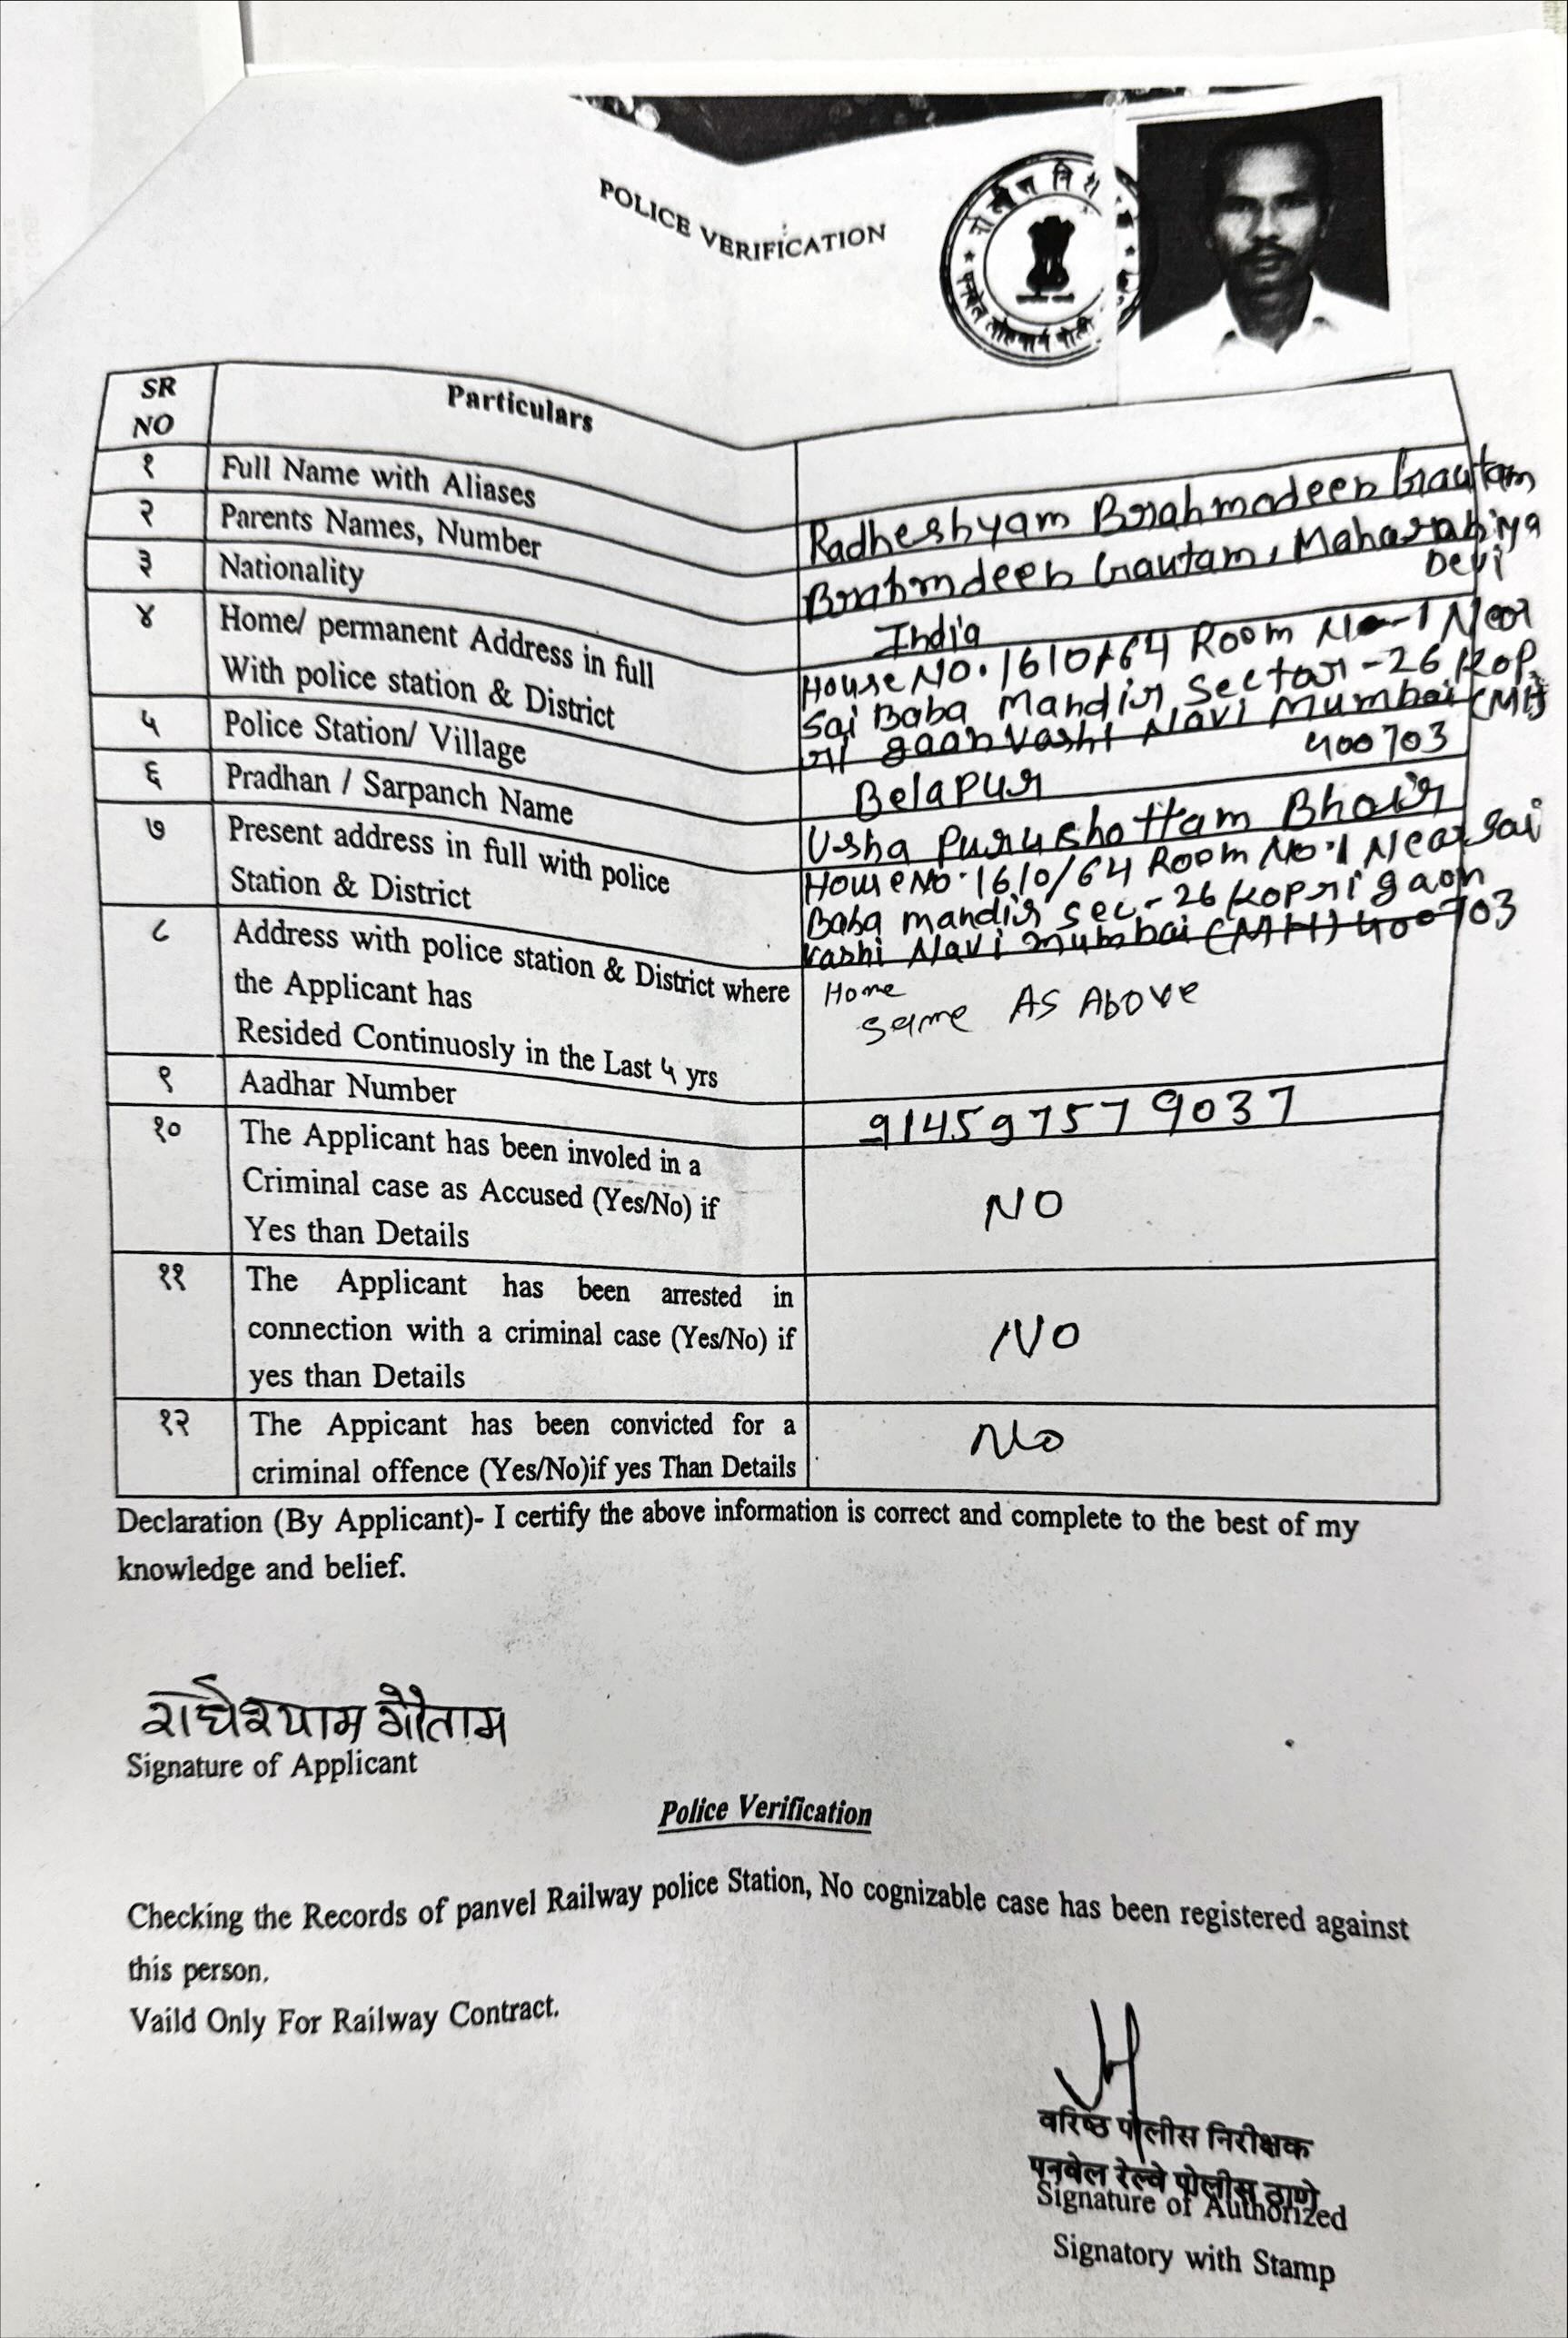 POLICE VERIFICATION
पोलीस निरी
पनवेल लोहमार्ग पोली
SR NO
Particulars
१ Full Name with Aliases Radheshyam Brahmadeen Gautam
२ Parents Names, Number Brahmdeen Gautam, Maharajiya Devi
३ Nationality India
४ Home/ permanent Address in full House No. 1610/64 Room No-1 Near
With police station & District Sai Baba Mandir Sector-26 Kop
ri gaon Vashi Navi Mumbai (MH)
400703
५ Police Station/ Village Belapur
६ Pradhan / Sarpanch Name Usha Purushottam Bhoir
७ Present address in full with police House No. 1610/64 Room No.1 Near Sai
Station & District Baba mandir Sec.-26 Kopri gaon
Vashi Navi mumbai (MH) 400703
८ Address with police station & District where Home
the Applicant has Same As Above
Resided Continuosly in the Last ५ yrs
९ Aadhar Number 914597579037
१० The Applicant has been involed in a
Criminal case as Accused (Yes/No) if NO
Yes than Details
११ The Applicant has been arrested in
connection with a criminal case (Yes/No) if NO
yes than Details
१२ The Appicant has been convicted for a No
criminal offence (Yes/No)if yes Than Details
Declaration (By Applicant)- I certify the above information is correct and complete to the best of my
knowledge and belief.
राधेश्याम गौताम
Signature of Applicant
Police Verification
Checking the Records of panvel Railway police Station, No cognizable case has been registered against
this person.
Vaild Only For Railway Contract.
वरिष्ठ पोलीस निरीक्षक
पनवेल रेल्वे पोलीस ठाणे
Signature of Authorized
Signatory with Stamp